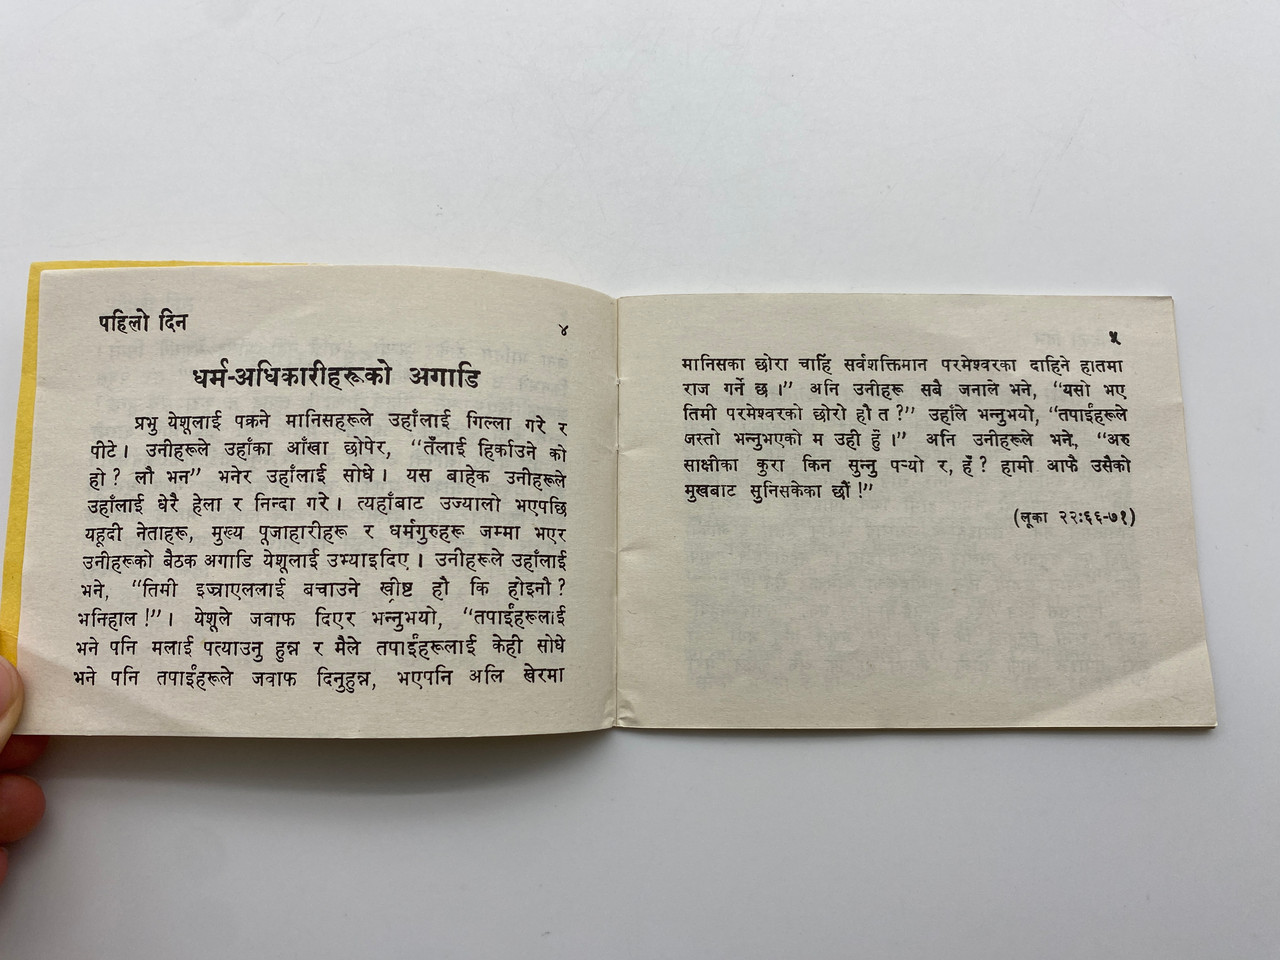 पहिलो दिन
४
धर्म-अधिकारीहरूको अगाडि
प्रभु येशूलाई पक्रने मानिसहरूले उहाँलाई गिल्ला गरे र
पीटे। उनीहरूले उहाँका आँखा छोपेर, “तँलाई हिर्काउने को
हो? लौ भन” भनेर उहाँलाई सोधे। यस बाहेक उनीहरूले
उहाँलाई धेरै हेला र निन्दा गरे। त्यहाँबाट उज्यालो भएपछि
यहूदी नेताहरू, मुख्य पूजाहारीहरू र धर्मगुरुहरू जम्मा भएर
उनीहरूको बैठक अगाडि येशूलाई उभ्याइदिए। उनीहरूले उहाँलाई
भने, “तिमी इज्राएललाई बचाउने ख्रीष्ट हौ कि होइनौ?
भनिहाल!”। येशूले जवाफ दिएर भन्नुभयो, “तपाईंहरूलाई
भने पनि मलाई पत्याउनु हुन्न र मैले तपाईंहरूलाई केही सोधे
भने पनि तपाईंहरूले जवाफ दिनुहुन्न, भएपनि अलि खेरमा
५
मानिसका छोरा चाहिं सर्वशक्तिमान परमेश्वरका दाहिने हातमा
राज गर्ने छ।” अनि उनीहरू सबै जनाले भने, “यसो भए
तिमी परमेश्वरको छोरो हौ त?” उहाँले भन्नुभयो, “तपाईंहरूले
जस्तो भन्नुभएको म उही हुँ।” अनि उनीहरूले भने, “अरु
साक्षीका कुरा किन सुन्नु पऱ्यो र, हँ? हामी आफै उसैको
मुखबाट सुनिसकेका छौं!”
(लूका २२:६६-७१)